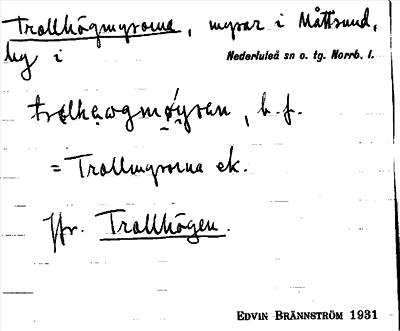 Trollhögmyrorna, myrar i Måttsund,
by i Nederluleå sn o. tg. Norrb. l.
trǫlhǝwgmǿ́yran, b. f.
= Trollmyrorna ek.
Jfr. Trollhögen.
EDVIN BRÄNNSTRÖM 1931